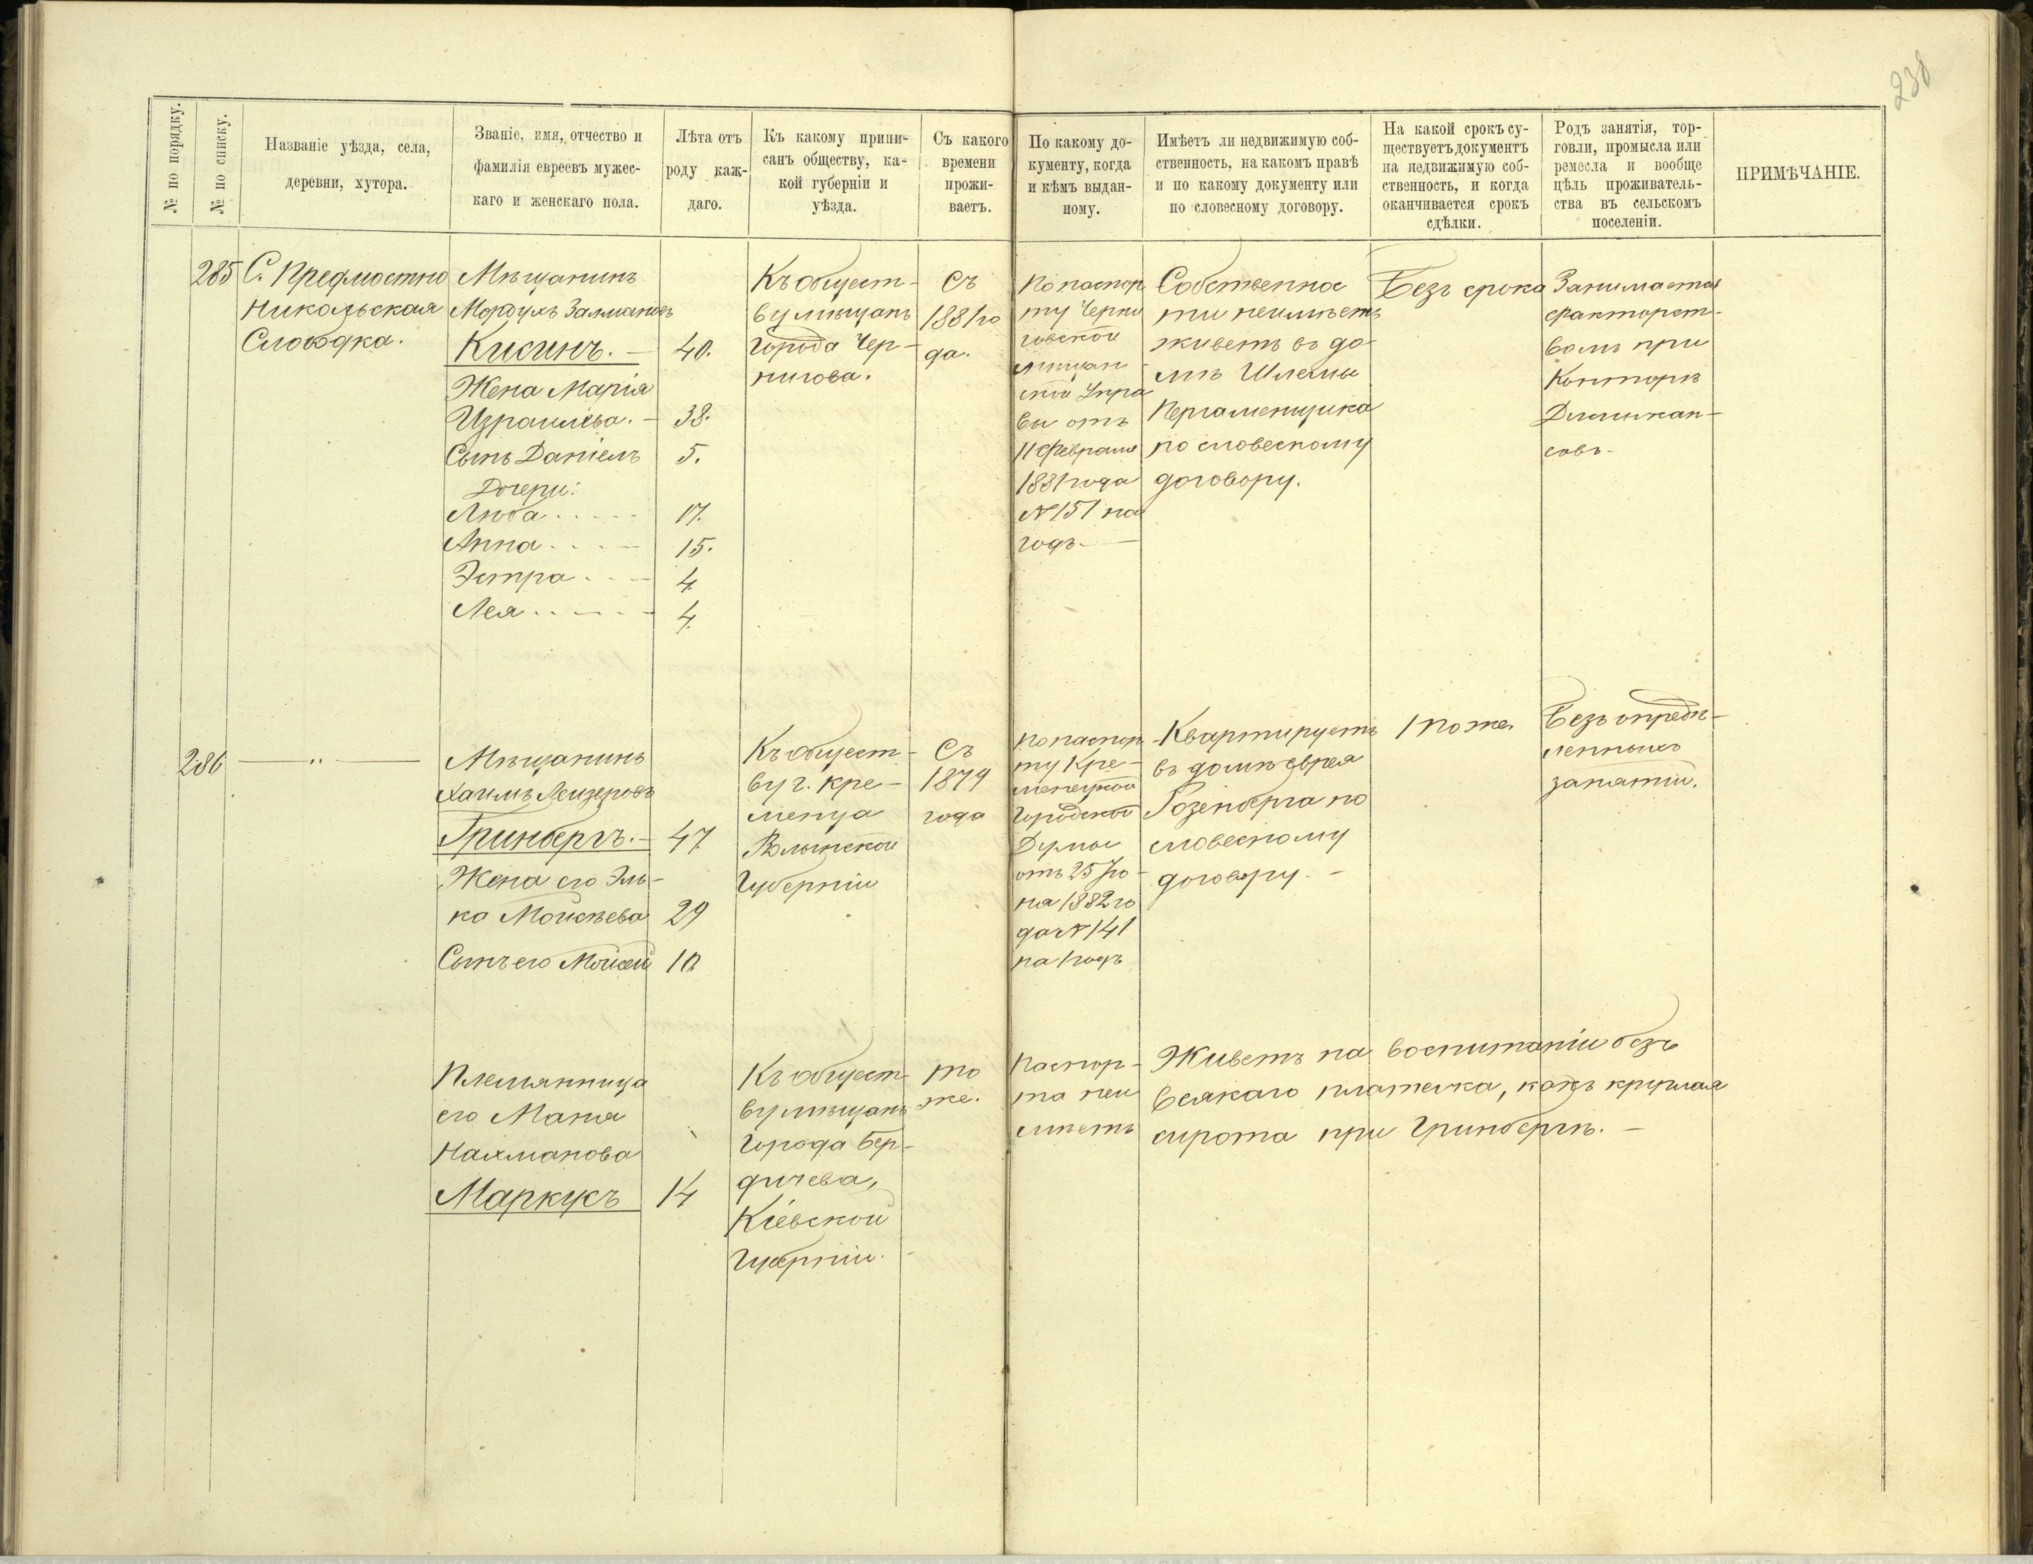 238
№ по порядку.
№ по списку.
Названіе уѣзда, села,
деревни, хутора.
Званіе, имя, отчество и
фамилія евреевъ мужес-
каго и женскаго пола.
Лѣта отъ
роду каж-
даго.
Къ какому припи-
санъ обществу, ка-
кой губерніи и
уѣзда.
Съ какого
времени
прожи-
ваетъ.
По какому до-
кументу, когда
и кѣмъ выдан-
ному.
Имѣетъ ли недвижимую соб-
ственность, на какомъ правѣ
и по какому документу или
по словесному договору.
На какой срокъ су-
ществуетъ документъ
на недвижимую соб-
ственность, и когда
оканчивается срокъ
сдѣлки.
Родъ занятія, тор-
говли, промысла или
ремесла и вообще
цѣль проживатель-
ства въ сельскомъ
поселеніи.
ПРИМѢЧАНІЕ.
285
С. Предмостно
Никольская
Слободка.
Мѣщанинъ
Мордухъ Залмановъ
Кисинъ. — 40.
Жена Марія
Израилева. — 38.
Сынъ Даніелъ 5.
Дочери:
Люба . . . . 17.
Анна . . . — 15.
Эстра . . — 4
Лея . . — . — 4.
Къ общест-
ву мѣщанъ
Города Чер-
нигова.
Съ
1881 го
да.
По паспор
ту Черни
говской
мѣщан
ской Упра
вы отъ
11 Февраля
1881 года
№ 151 на
годъ. —
Собственнос
ти неимѣетъ
живетъ въ до-
мѣ Шлемы
Пергаменщика
по словесному
договору.
Безъ срока
Занимается
факторст-
вомъ при
Конторѣ
Дилижан-
совъ.
286 — " —
Мѣщанинъ
Хаимъ Лейзеровъ
Гринбергъ. — 47
Жена его Эль-
ка Мойсѣева 29
Сынъ его Мойсей 10
Къ общест-
ву г. Кре-
менца
Волынской
Губерніи
Съ
1879
года
По паспор
ту Кре-
менецкой
Городской
Думы
отъ 25
на 1882 го
да № 141
на 1 годъ
Квартируетъ
въ домѣ еврея
Розенберга по
словесному
договору. —
тоже
Безъ опредѣ-
ленныхъ
занятій.
Племянница
его Маня
Нахманова
Маркукъ 14
Къ общест-
ву мѣщанъ
Города Бер-
дичева,
Кіевской
Губерніи.
то
же.
Паспор-
та неи
мѣетъ
Живетъ на воспитаніи безъ
всякаго платежа, какъ круглая
сирота при Гринбергѣ. —